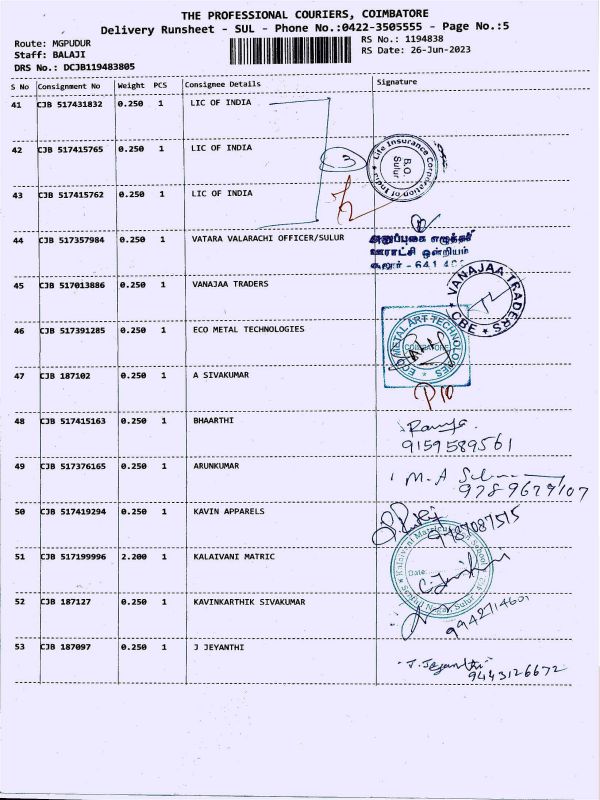 THE PROFESSIONAL COURIERS, COIMBATORE
Delivery Runsheet - SUL - Phone No.:0422-3505555 - Page No.:5
Route: MGPUDUR
Staff: BALAJI
DRS No.: DCJB119483805
RS No.: 1194838
RS Date: 26-Jun-2023
S No Consignment No Weight PCS Consignee Details Signature
41 CJB 517431832 0.250 1 LIC OF INDIA
42 CJB 517415765 0.250 1 LIC OF INDIA
3
Life Insurance Corporation of India
B.O.
Sulur
43 CJB 517415762 0.250 1 LIC OF INDIA
44 CJB 517357984 0.250 1 VATARA VALARACHI OFFICER/SULUR
ஊராட்சி ஒன்றியம்
சூலூர் - 641 402
45 CJB 517013886 0.250 1 VANAJAA TRADERS
VANAJAA TRADERS
CBE
46 CJB 517391285 0.250 1 ECO METAL TECHNOLOGIES
COIMBATORE
47 CJB 187102 0.250 1 A SIVAKUMAR
48 CJB 517415163 0.250 1 BHAARTHI
Ramya
9159589561
49 CJB 517376165 0.250 1 ARUNKUMAR
M.A
9789679107
50 CJB 517419294 0.250 1 KAVIN APPARELS
9787087515
51 CJB 517199996 2.200 1 KALAIVANI MATRIC
Date:
52 CJB 187127 0.250 1 KAVINKARTHIK SIVAKUMAR
9942714601
53 CJB 187097 0.250 1 J JEYANTHI
J. Jeyanthi
9443126672